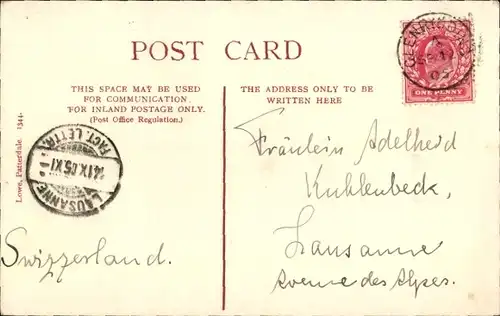 POST CARD
THIS SPACE MAY BE USED
FOR COMMUNICATION.
FOR INLAND POSTAGE ONLY.
(Post Office Regulation.)
THE ADDRESS ONLY TO BE
WRITTEN HERE
GLENRIDDING
A
SE 11
05
ONE PENNY
Lowe, Patterdale. 1544.
LAUSANNE
14.IX.05.XI
FACT. LETTR.
Fräulein Adelheid
Kuhlenbeck,
Lausanne
Avenue des Alpes.
Swizzerland.